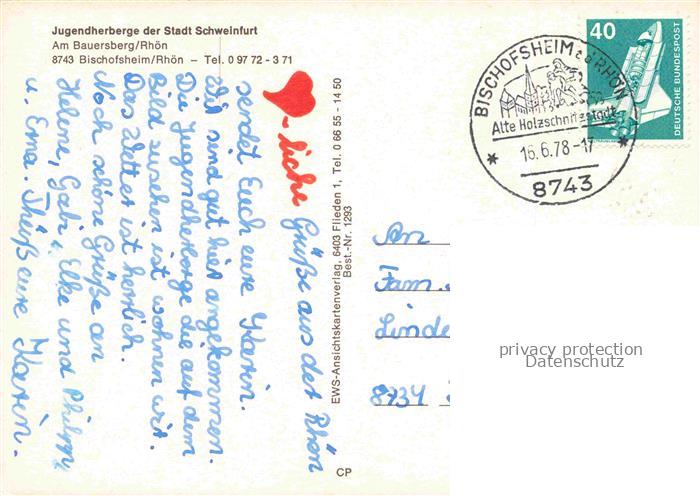 Jugendherberge der Stadt Schweinfurt
Am Bauersberg/Rhön
8743 Bischofsheim/Rhön – Tel. 0 97 72 - 3 71
-liche Grüße aus der Rhön
sendet Euch eure Karin.
Wir sind gut hier angekommen.
Die Jugendherberge die auf dem
Bild zusehen ist wohnen wir.
Das Wetter ist herrlich.
Noch schöne Grüße an
Helene, Gabi, Elke und Philipp
u. Erna. Tschüß eure Karin.
EWS-Ansichtskartenverlag, 6403 Flieden 1, Tel. 0 66 55 - 14 50
Best.-Nr. 1293
CP
BISCHOFSHEIM a.d. RHÖN
Alte Holzschnitzstadt
16.6.78-17
8743
40
DEUTSCHE BUNDESPOST
An
Fam.
Linde
8734
privacy protection
Datenschutz